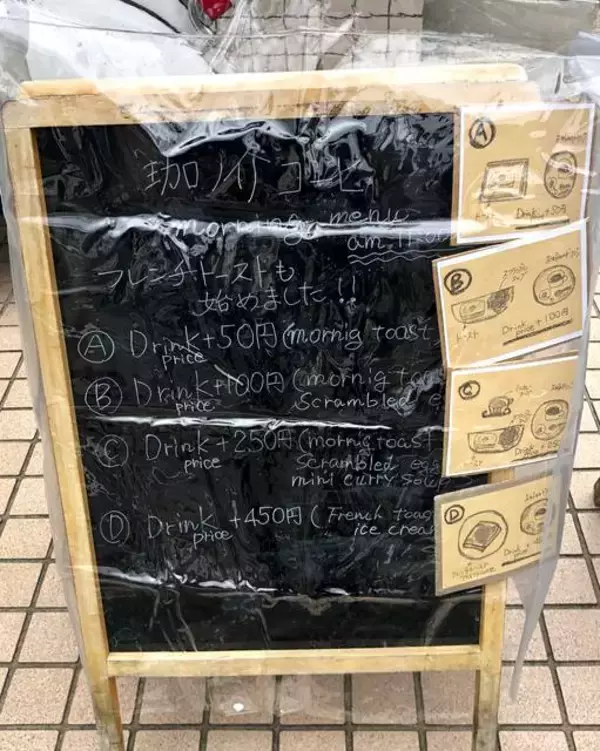 珈ノイ コヒ
morning menu
am.11:00
フレンチトーストも
始めました!!
A Drink+50円(mornig toast
price
B Drink+100円(mornig toa
price Scrambled e
C Drink+250円(mornig toast
price Scrambled eg
mini curry soup
D Drink+450円(French toas
price ice crea
A
トースト Drink+50円
B
トースト Drink+100円
price
C
トースト
D